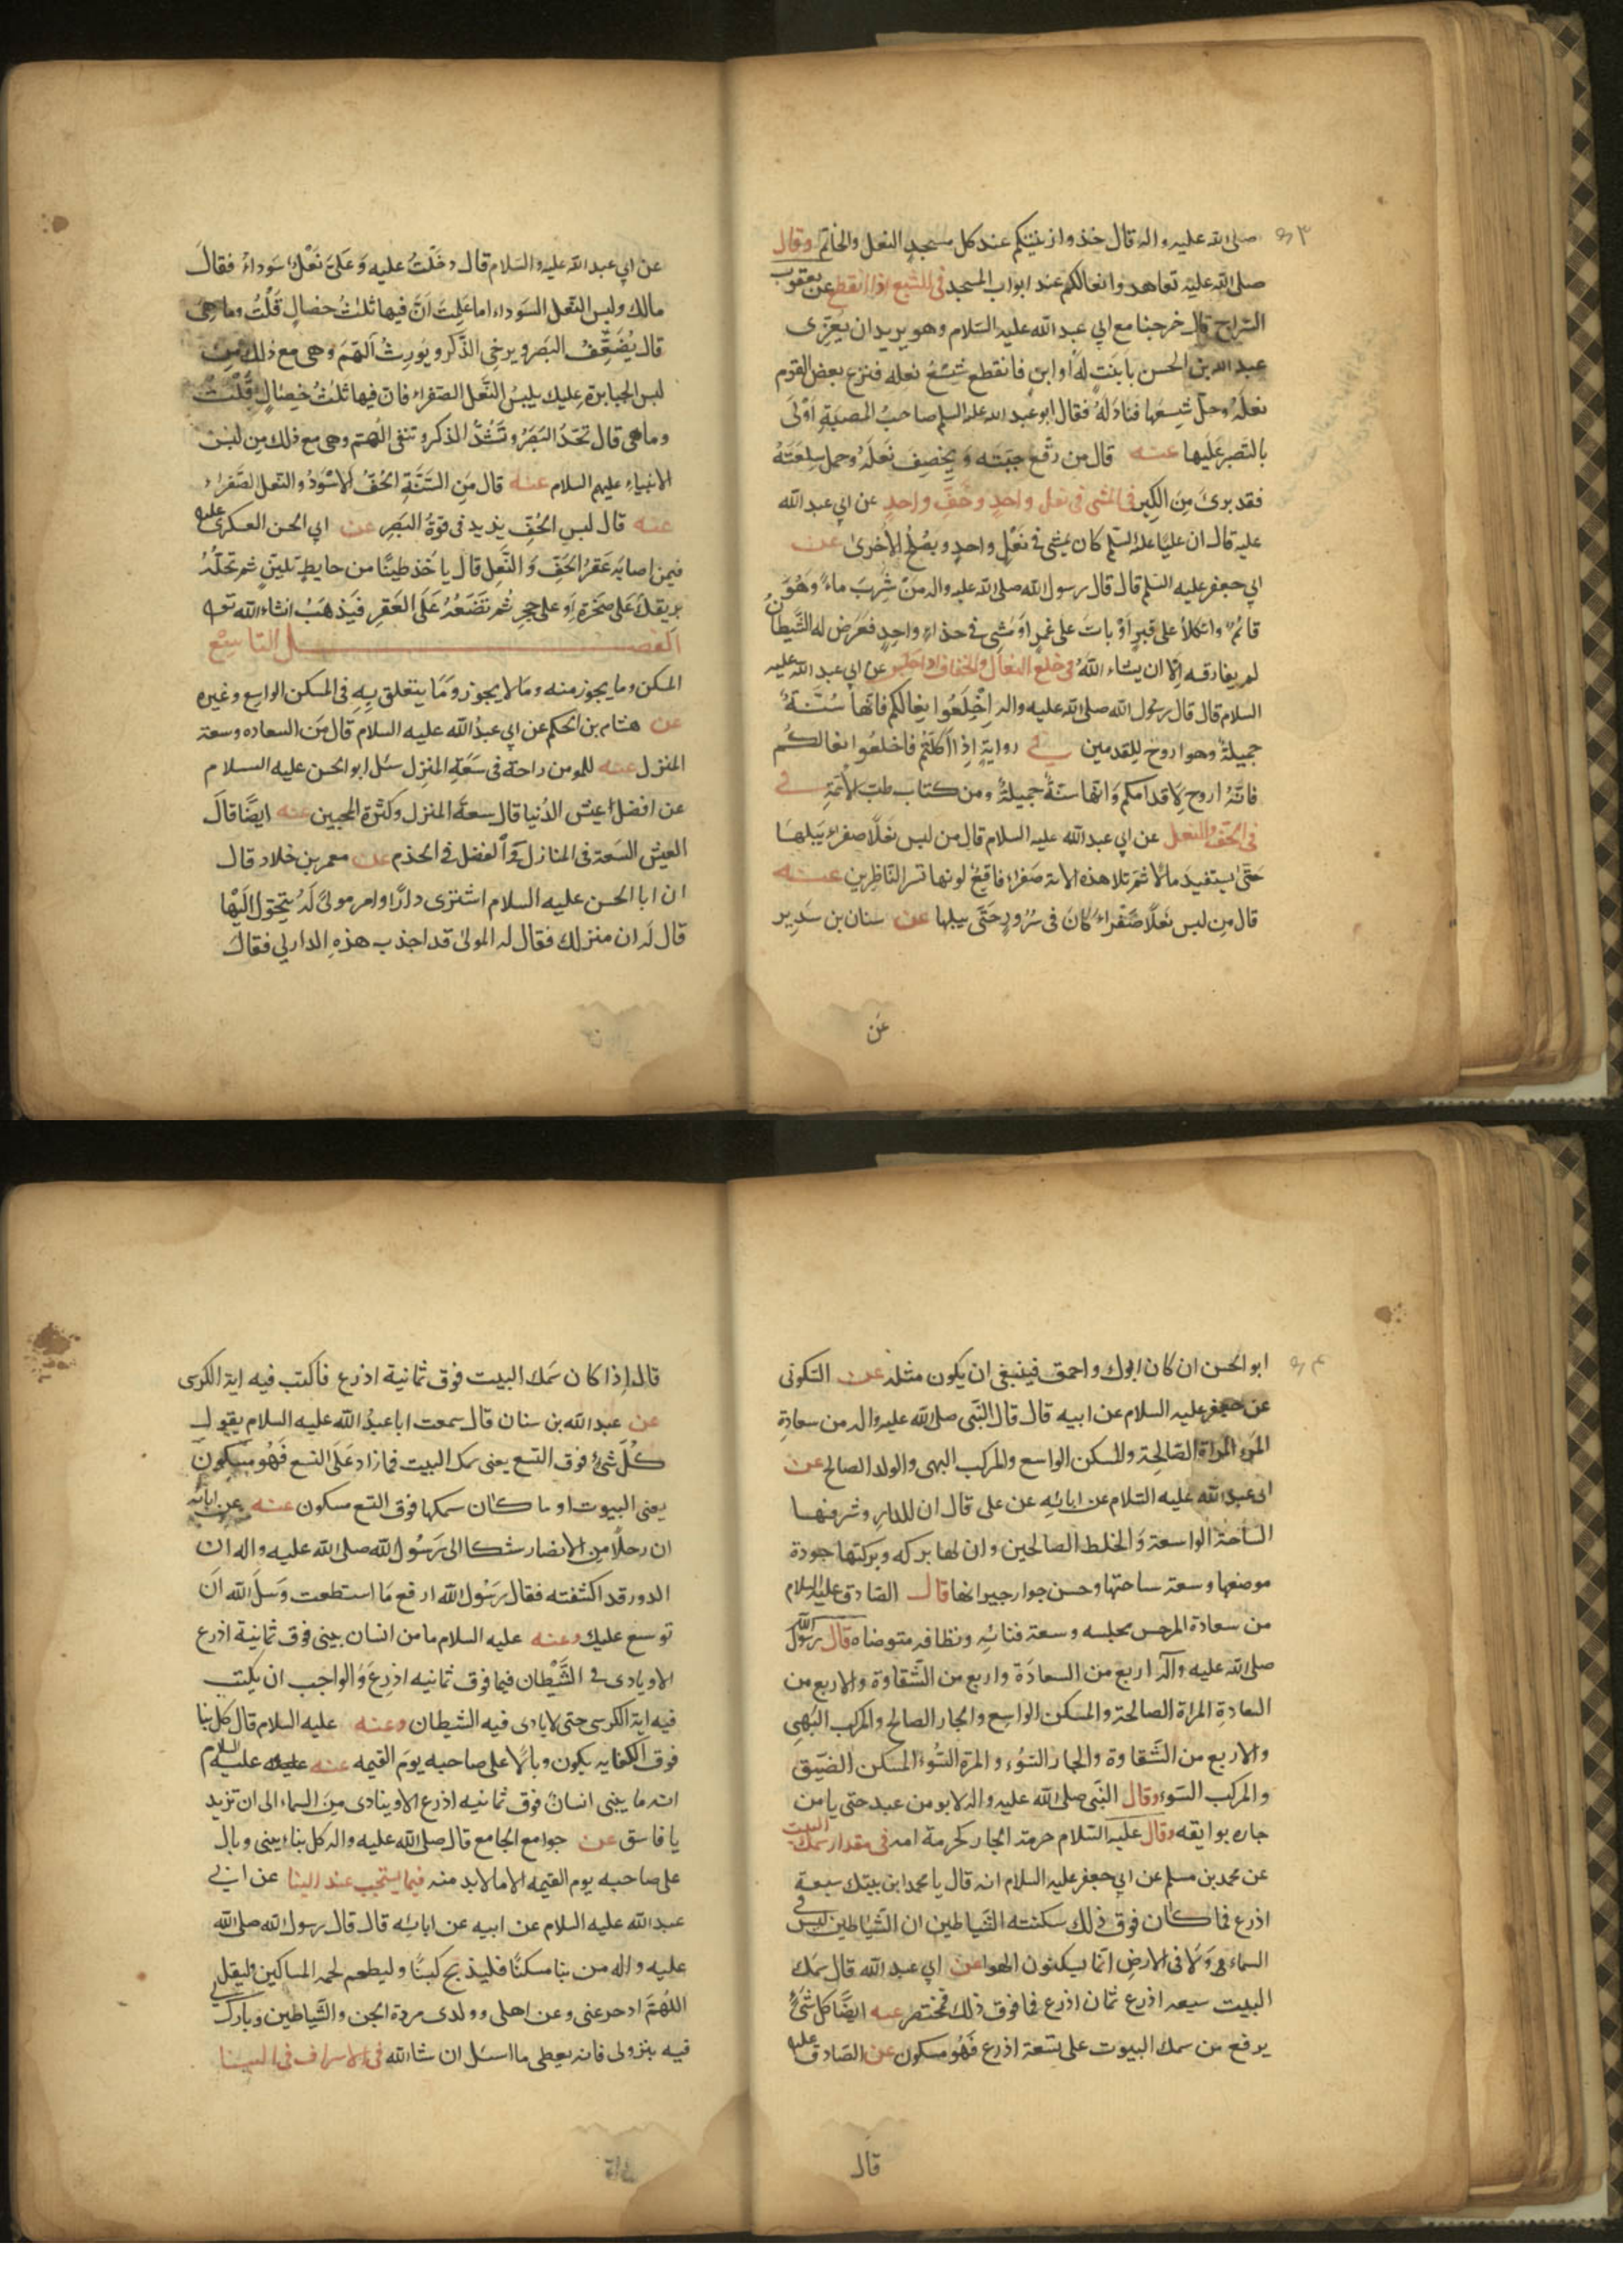 صلى الله عليه واله قال خذوا زينتكم عند كل مسجد النعل والخاتم وقال
صلى الله عليه تعاهدوا نعالكم عند ابواب المسجد فى الشسع اذا انقطع عن يعقوب
السراج قال خرجنا مع ابي عبد الله عليه السلام وهو يريد ان يعزى
عبد الله بن الحسن بابنت له او ابن فانقطع شسع نعله فنزع بعض القوم
نعله وحل شسعها فناوله فقال ابو عبد الله عليه السلم صاحب المصيبة اولى
بالصبر عليها عنه قال من رقع جبته و يخصف نعله وحمل سلعته
فقد برئ من الكبر فى المشى فى نعل واحد وخف واحد عن ابي عبد الله
عليه قال ان عليا عليه السلم كان يمشى فى نعل واحد و يصلح الأخرى عن
ابي جعفر عليه السلم قال قال رسول الله صلى الله عليه واله من شرب ماء وهو
قائم واتكلأ على قبر أو بات على غمر او مشى فى حذاء واحد فعرض له الشيطان
لم يفارقه الا ان يشاء الله فى خلع النعال والخفاف اذا جلس عن ابي عبد الله عليه
السلام قال قال رسول الله صلى الله عليه واله اخلعوا نعالكم فانها سنة
جميلة وهو اروح للقدمين في رواية إذا اكلتم فاخلعوا نعالكم
فانه اروح لاقدامكم وانها سنة جميلة ومن كتاب طب الأئمة في
فى الخف والنعل عن ابي عبد الله عليه السلام قال من لبس نعلا صفراء يبلها
حتى يستفيد مالا ثم تلا هذه الاية صفراء فاقع لونها تسر الناظرين عنه
قال من لبس نعلا صفراء كان فى سرور حتى يبلها عن سنان بن سدير
عن
عن ابي عبد الله عليه السلام قال دخلت عليه وعلى نعل سوداء فقال
مالك ولبس النعل السوداء اما علمت ان فيها ثلث خصال قلت وما هى
قال يضعف البصر و يرخى الذكر و يورث الهم وهى مع ذلك من
لبس الجبابرة عليك بلبس النعل الصفراء فان فيها ثلث خصال قلت
وما هى قال تحد البصر و تشد الذكر و تنفى الهم وهى مع ذلك من لبس
الانبياء عليهم السلام عنه قال من السنة الخف الاسود والنعل الصفراء
عنه قال لبس الخف يزيد فى قوة البصر عن ابي الحسن العسكرى عليه
فيمن اصابه عقر الخف و النعل قال يأخذ طينا من حايط بلبن ثم تحله
بريقك على صخرة او على حجر ثم تضعه على العقر فيذهب انشاء الله تعه
الفصل التاسع
المسكن وما يجوز منه وما لا يجوز وما يتعلق به فى المسكن الواسع وغيره
عن هشام بن الحكم عن ابي عبد الله عليه السلام قال من السعاده وسعة
المنزل عنه للمومن راحة فى سعة المنزل سئل ابو الحسن عليه السلام
عن افضل عيش الدنيا قال سعة المنزل وكثرة المحبين عنه ايضا قال
العيش السعة فى المنازل و الفضل فى الخدم عن معمر بن خلاد قال
ان ابا الحسن عليه السلام اشترى دارا وامر مولى له يتحول اليها
قال له ان منزلك فقال له المولى قد اجذب هذه الدار لي فقال
ابو الحسن ان كان ابوك واحمق فينبغى ان يكون مثله عن السكونى
عن جعفر عليه السلام عن ابيه قال قال النبى صلى الله عليه واله من سعادة
المرء المراة الصالحة والمسكن الواسع والمركب البهى والولد الصالح عن
ابى عبد الله عليه السلام عن ابائه عن على قال ان للدار و شرفها
الساحة الواسعة و الخلط الصالحين وان لها بركه و بركتها جودة
موضعها وسعة ساحتها وحسن جوار جيرانها قال الصادق عليه السلام
من سعادة المر حسن مجلسه وسعة فنائه ونظافه متوضاه قال رسول الله
صلى الله عليه وآله اربع من السعادة واربع من الشقاوة والاربع من
السعادة المراة الصالحة والمسكن الواسع والجار الصالح والمركب البهى
والاربع من الشقاوة والجار السوء والمرة السوء المسكن الضيق
والمركب السوء وقال النبى صلى الله عليه واله لا يومن عبد حتى يامن
جاره بوايقه وقال عليه السلام حرمة الجار كحرمة امه فى مقدار سمك البيت
عن محمد بن مسلم عن ابي جعفر عليه السلام انه قال يا محمد ابن بيتك سبعة
اذرع فما كان فوق ذلك سكنته الشياطين ان الشياطين ليس فى
السماء هى ولا فى الارض انما يسكنون الهوا عن ابي عبد الله قال سمك
البيت سبعه اذرع ثمان اذرع فما فوق ذلك فمحتضر عنه ايضا كل شئ
يرفع من سمك البيوت على تسعة اذرع فهو مسكون عن الصادق عليه
قال
قال إذا كان سمك البيت فوق ثمانية اذرع فاكتب فيه اية الكرسى
عن عبد الله بن سنان قال سمعت ابا عبد الله عليه السلام يقول
كل شئ فوق التسع يعنى سمك البيت فما زاد على التسع فهو مسكون
يعنى البيوت او ما كان سمكها فوق التسع مسكون عنه عن ابائه
ان رجلا من الانصار شكا الى رسول الله صلى الله عليه واله ان
الدور قد اكتنفته فقال رسول الله ارفع ما استطعت وسل الله ان
توسع عليك وعنه عليه السلام ما من انسان يبنى فوق ثمانية اذرع
الا وياوى فى الشيطان فيما فوق ثمانيه اذرع والواجب ان يكتب
فيه اية الكرسى حتى لا ياوى فيه الشيطان وعنه عليه السلام قال كل بنا
فوق الكفايه يكون وبالا على صاحبه يوم القيمه عنه عليه السلام
انه ما يبنى انسان فوق ثمانيه اذرع الا وينادى من السماء الى ان تزيد
يا فاسق عن جوامع الجامع قال صلى الله عليه واله كل بناء يبنى وبال
على صاحبه يوم القيمه الا ما لا بد منه فيما يستحب عند البنا عن ابي
عبد الله عليه السلام عن ابيه عن ابائه قال قال رسول الله صلى الله
عليه واله من بنا مسكنا فليذبح كبشا وليطعم لحمه المساكين وليقل
اللهم ادحر عنى وعن اهلى وولدى مردة الجن والشياطين وبارك لى
فيه بنزولى فانه يعطى ما اسئل ان شاالله فى الاسراف فى البنا